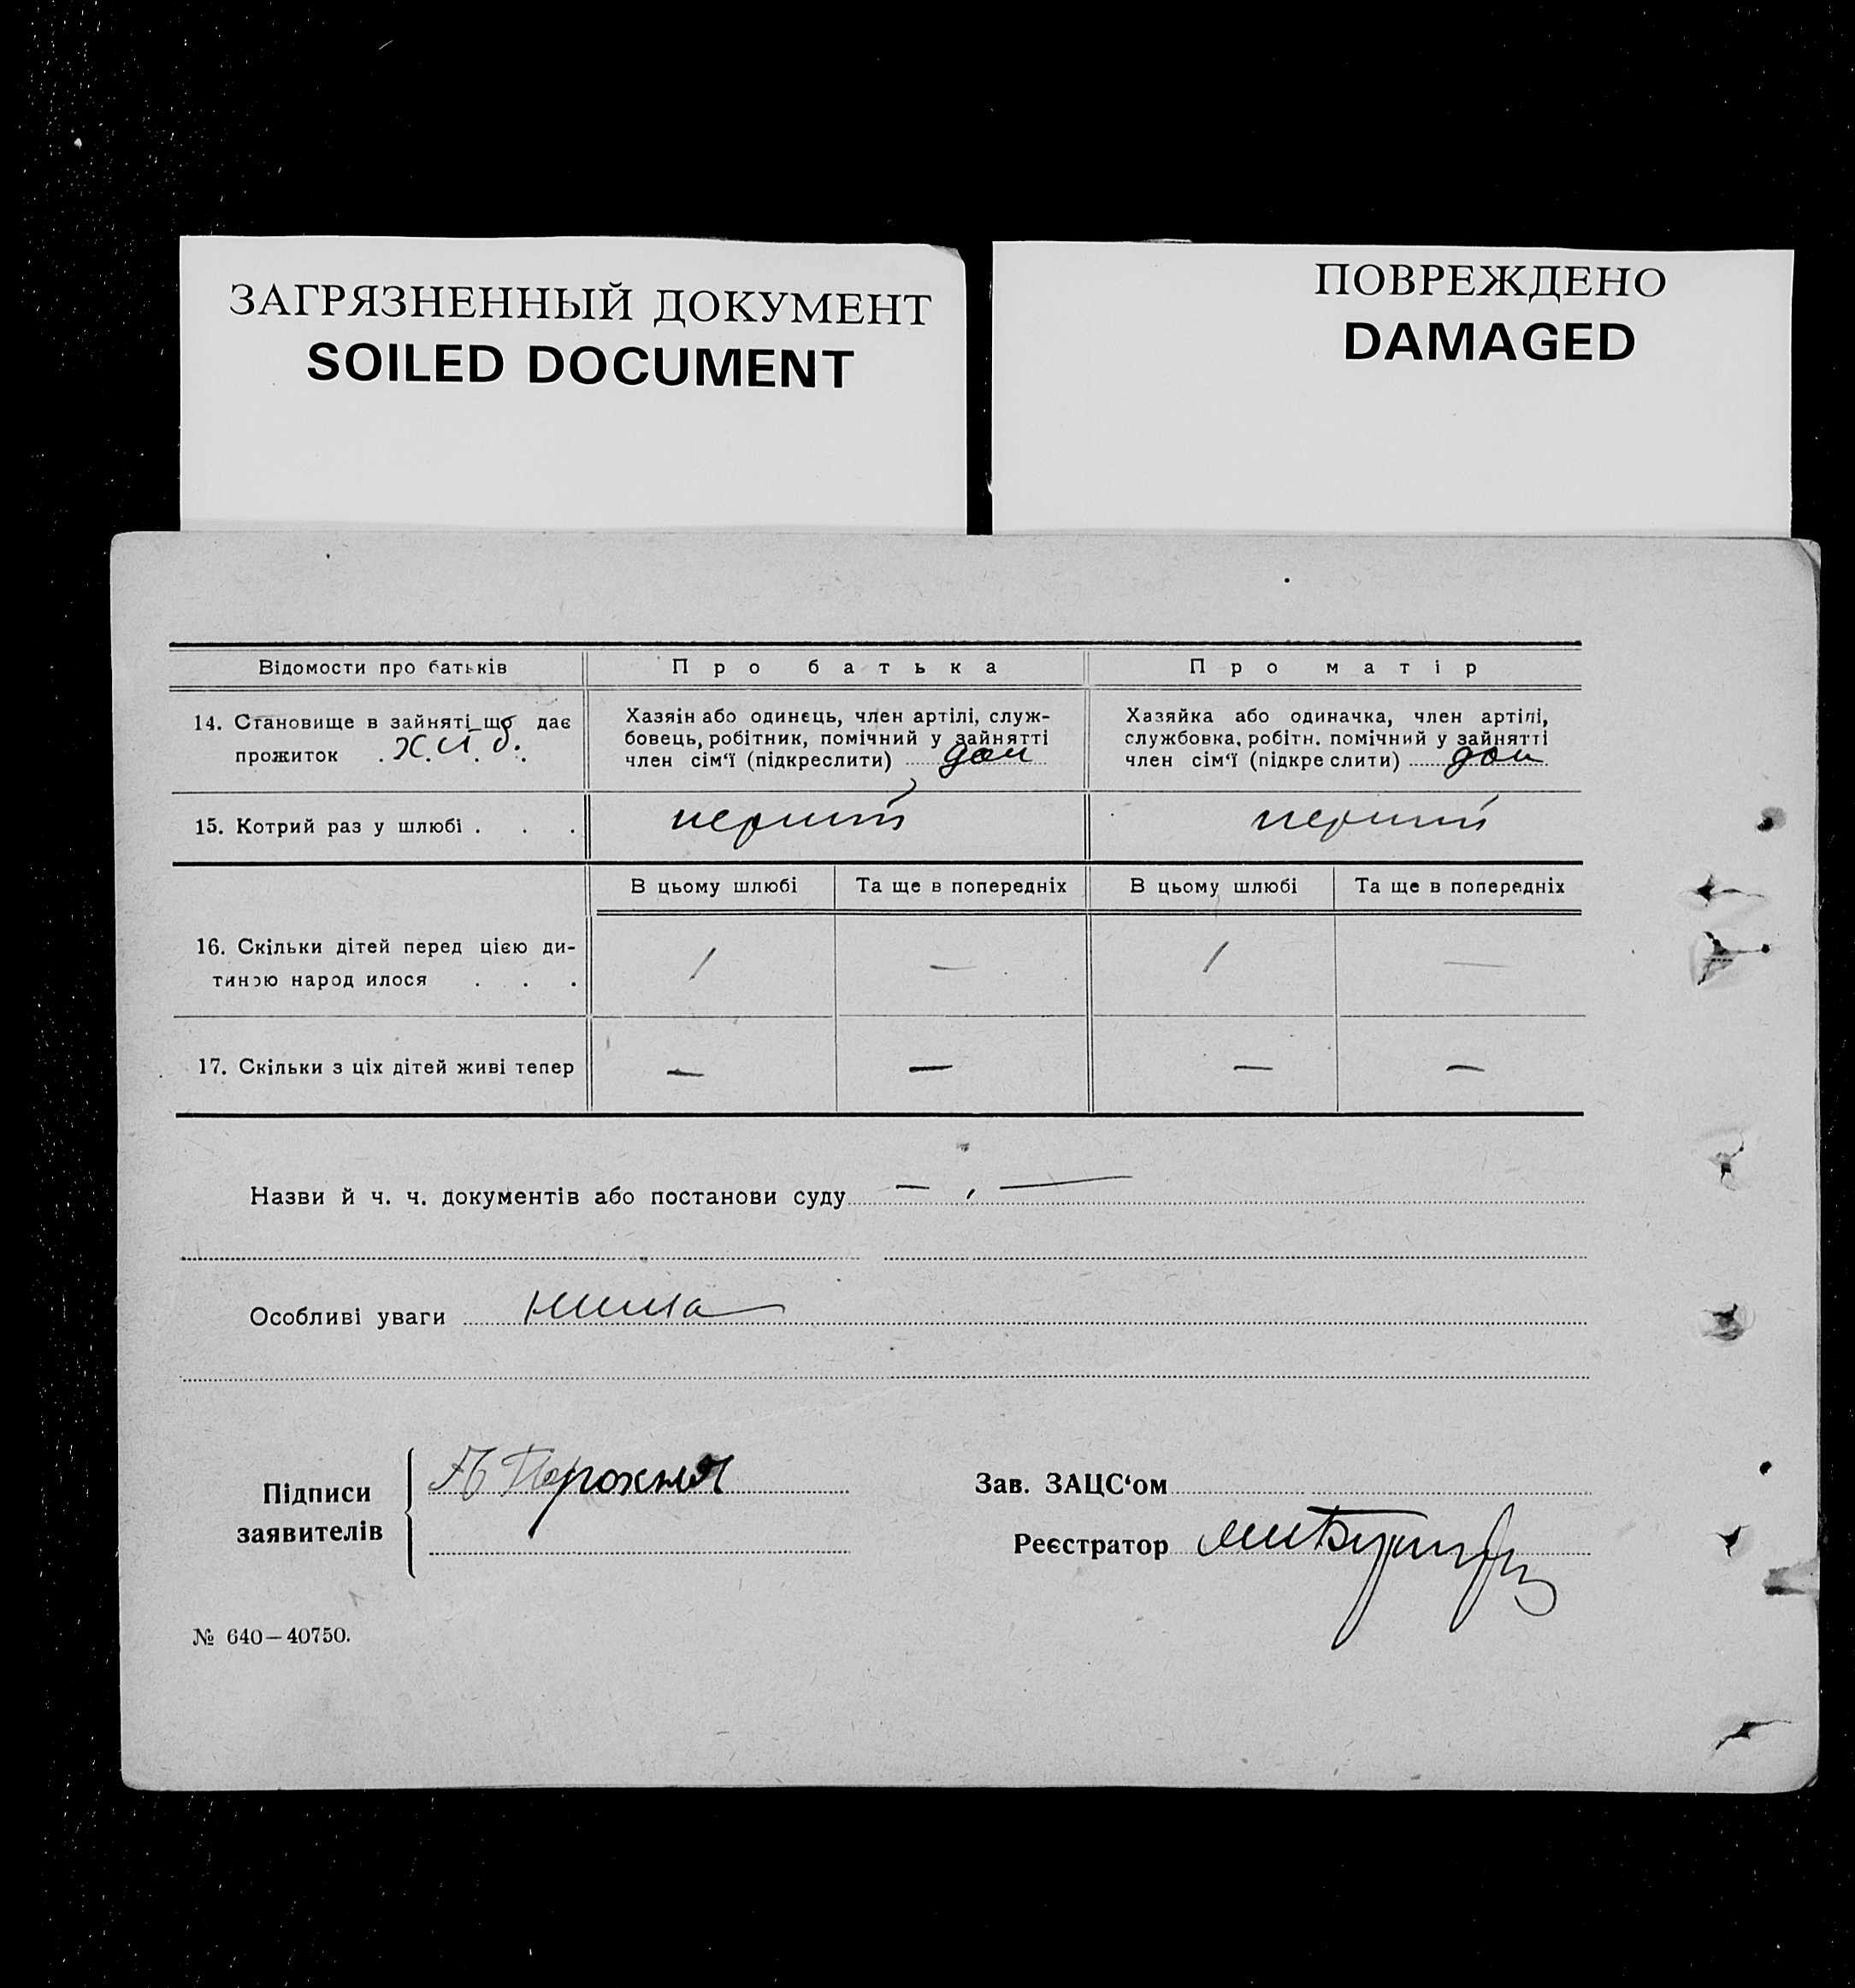 ЗАГРЯЗНЕННЫЙ ДОКУМЕНТ
SOILED DOCUMENT
ПОВРЕЖДЕНО
DAMAGED
Відомости про батьків
Про батька
Про матір
14. Становище в зайняті що дає
прожиток . . . .
Хазяін або одинець, член артілі, служ-
бовець, робітник, помічний у зайнятті
член сім'ї (підкреслити)
Хазяйка або одиначка, член артілі,
службовка, робітн. помічний у зайнятті
член сім'ї (підкреслити)
15. Котрий раз у шлюбі . . .
перший
перший
В цьому шлюбі
Та ще в попередніх
В цьому шлюбі
Та ще в попередніх
16. Скільки дітей перед цією ди-
тиною народилося . . .
1
—
1
—
17. Скільки з ціх дітей живі тепер
—
—
—
—
Назви й ч. ч. документів або постанови суду
Особливі уваги нима
Підписи
заявителів
Порохня
Зав. ЗАЦС'ом
Реєстратор
№ 640—40750.